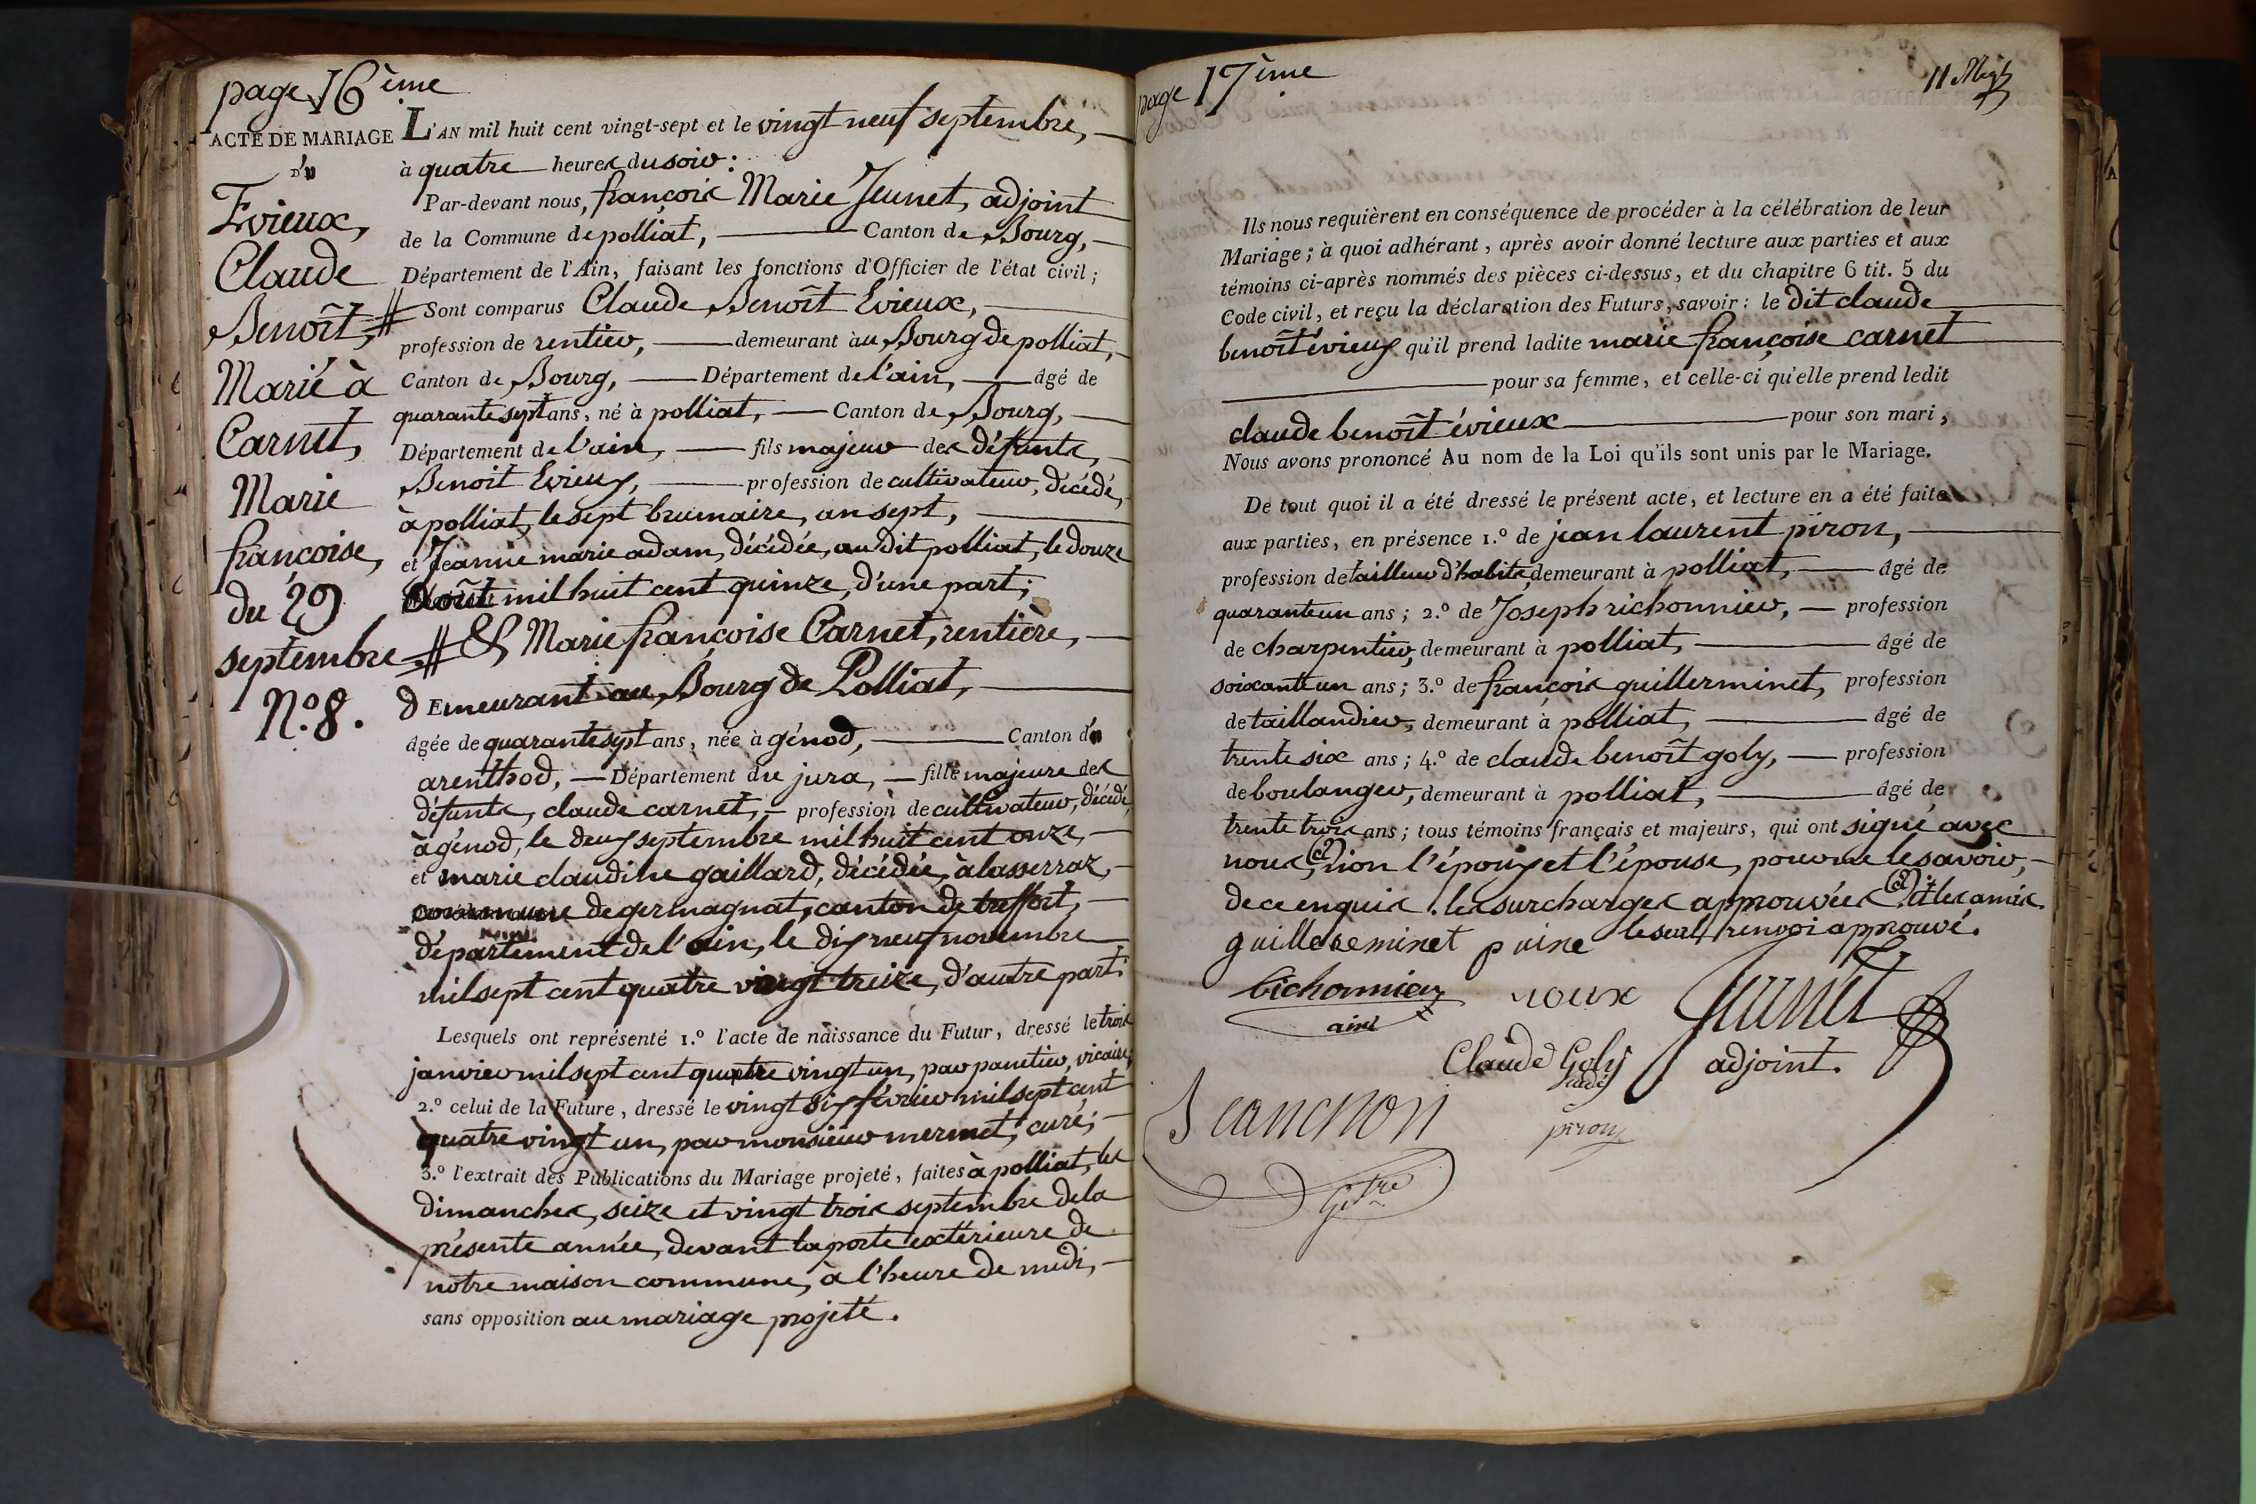 page 16ème
ACTE DE MARIAGE
D'u
Evieux,
Claude
Benoît,
Marié à
Carnet,
Marie
françoise,
du 29
septembre
N.o 8.
L'AN mil huit cent vingt-sept et le vingt neuf septembre,
à quatre heures du soir :
Par-devant nous, françois Marie Jeunet, adjoint
de la Commune de polliat, Canton de Bourg,
Département de l'Ain, faisant les fonctions d'Officier de l'état civil ;
Sont comparus Claude Benoît Evieux,
profession de rentier, demeurant au Bourg de polliat,
Canton de Bourg, Département de l'ain, âgé de
quarante sept ans, né à polliat, Canton de Bourg,
Département de l'ain, fils majeur des défunts,
Benoit Evieux, profession de cultivateur, décédé,
à polliat, le sept brumaire, an sept,
et Jeanne marie adam, décédée, au dit polliat, le douze
Août mil huit cent quinze, d'une part ;
# & Marie françoise Carnet, rentière,
dEmeurant au Bourg de Polliat,
âgée de quarante sept ans, née à génod, Canton d'
arenthod, Département du jura, fille majeure des
défunts, claude carnet, profession de cultivateur, décédé,
à génod, le deux septembre mil huit cent onze,
et marie claudine gaillard, décédée, à lasserraz,
commune de germagnat, canton de treffort,
département de l'ain, le dix neuf novembre
mil sept cent quatre vingt treize, d'autre part ;
Lesquels ont représenté 1.o l'acte de naissance du Futur, dressé le trois
janvier mil sept cent quatre vingt un, par panetier, vicaire,
2.o celui de la Future, dressé le vingt six février mil sept cent
quatre vingt un, par monsieur mermet, curé ;
3.o l'extrait des Publications du Mariage projeté, faites à polliat, les
dimanches, seize et vingt trois septembre de la
présente année, devant la porte extérieure de
notre maison commune, à l'heure de midi,
sans opposition au mariage projeté.
page 17ème
11
Ils nous requièrent en conséquence de procéder à la célébration de leur
Mariage ; à quoi adhérant, après avoir donné lecture aux parties et aux
témoins ci-après nommés des pièces ci-dessus, et du chapitre 6 tit. 5 du
Code civil, et reçu la déclaration des Futurs, savoir : le dit claude
benoît évieux qu'il prend ladite marie françoise carnet
pour sa femme, et celle-ci qu'elle prend ledit
claude benoît évieux pour son mari,
Nous avons prononcé Au nom de la Loi qu'ils sont unis par le Mariage.
De tout quoi il a été dressé le présent acte, et lecture en a été faite
aux parties, en présence 1.o de jean laurent piron,
profession de tailleur d'habits, demeurant à polliat, âgé de
quarante un ans ; 2.o de Joseph richonnier, profession
de charpentier, demeurant à polliat, âgé de
soixante un ans ; 3.o de françois guillerminet, profession
de taillandier, demeurant à polliat, âgé de
trente six ans ; 4.o de claude benoît goly, profession
de boulanger, demeurant à polliat, âgé de
trente trois ans ; tous témoins français et majeurs, qui ont signé avec
nous, non l'époux et l'épouse, pour ne le savoir,
de ce enquis. les surcharges approuvées. et les amis.
le seul renvoi approuvé.
guillereminet puine
richonnier
ainé
roux
Jeunet
adjoint.
Claude Goly
cadé
Jeancnon
piron